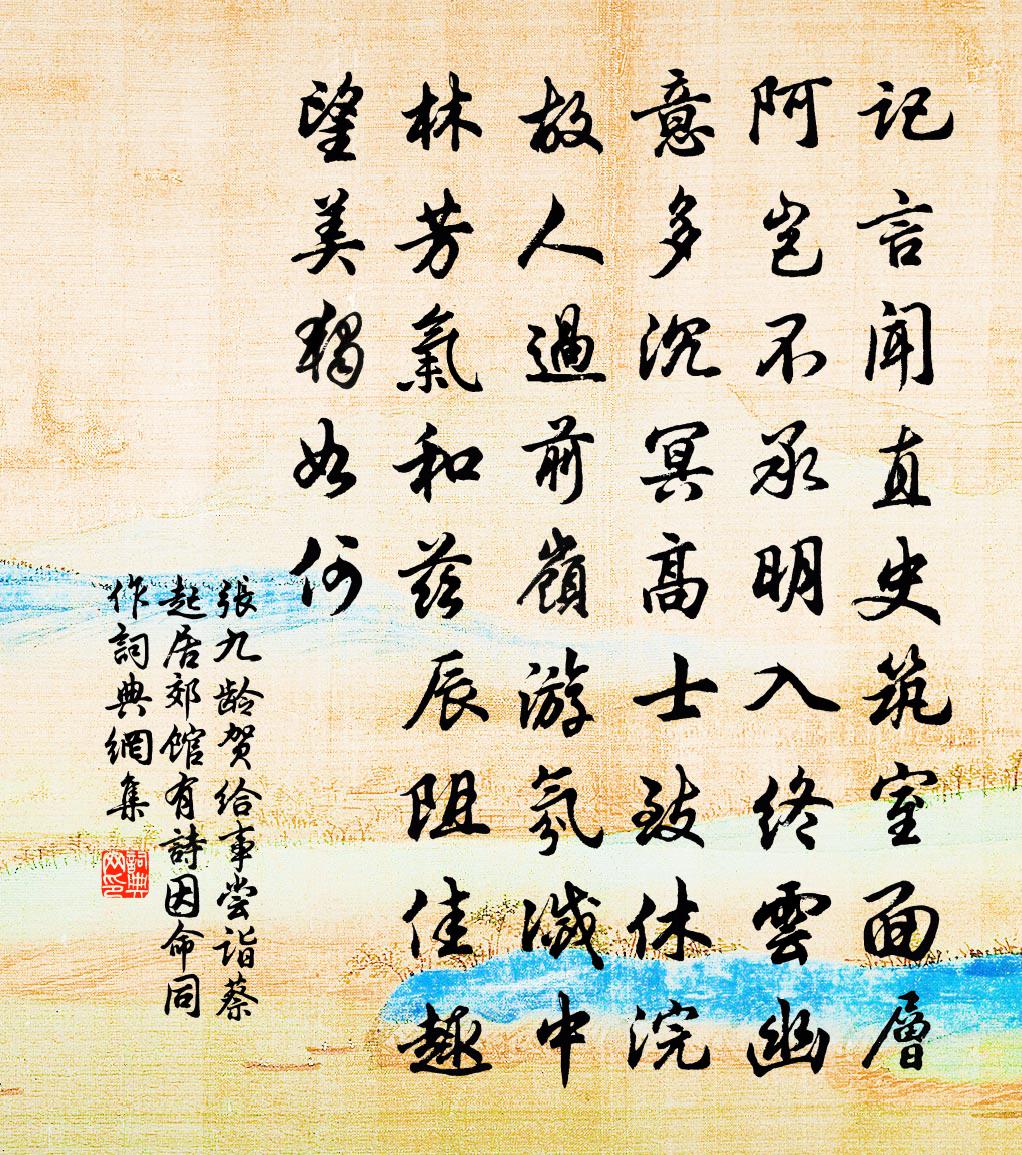 记言闻直史筑室面層
阿岂不承明入终雲幽
意多沉冥高士致休浣
故人過前嶺游氛滅中
林芳氣和兹辰阻佳趣
望美獨如何
張九龄贺给事尝诣蔡
起居郊馆有詩因命同
作詞典網集
詞典网印